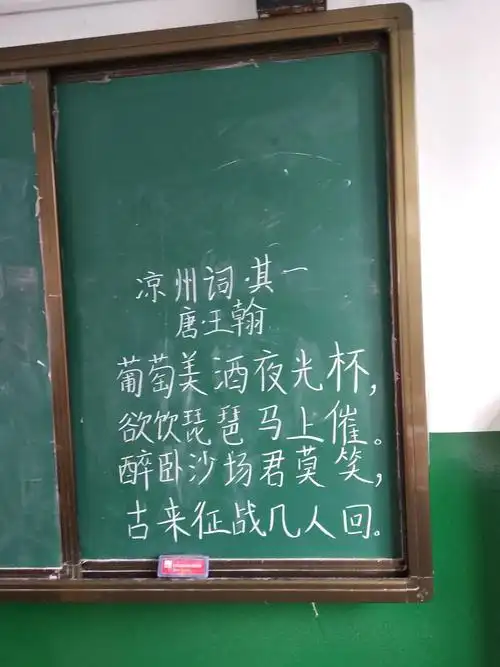 凉州词·其一
唐·王翰
葡萄美酒夜光杯，
欲饮琵琶马上催。
醉卧沙场君莫笑，
古来征战几人回。